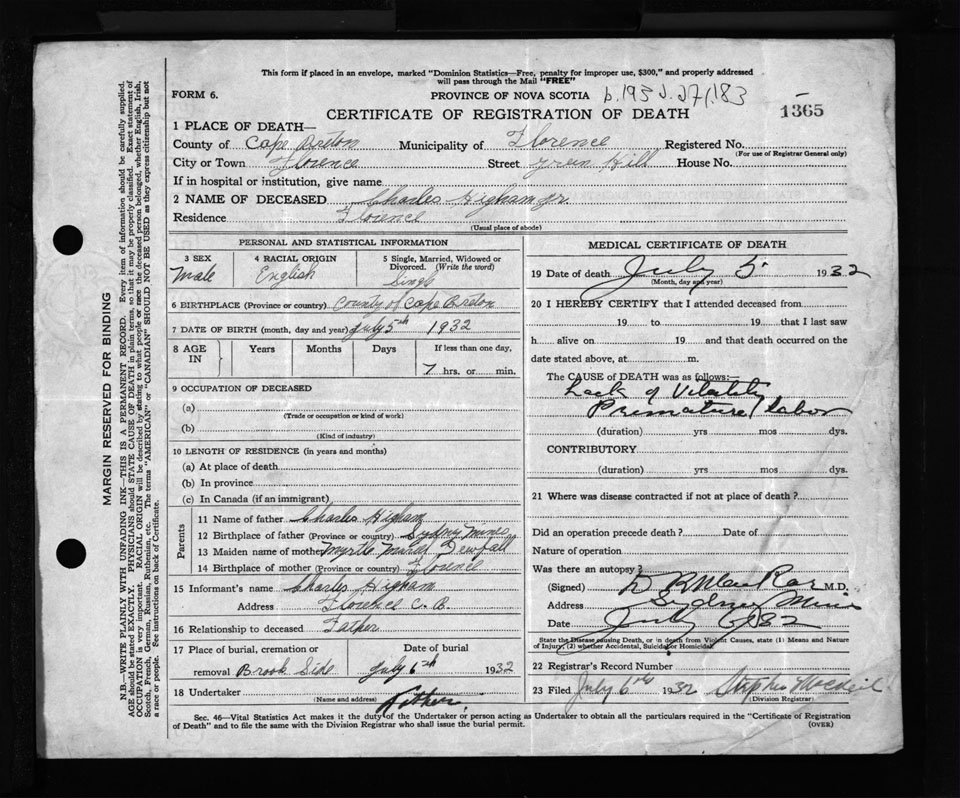 This form if placed in an envelope, marked "Dominion Statistics—Free, penalty for improper use, $300," and properly addressed
will pass through the Mail "FREE"
FORM 6.
PROVINCE OF NOVA SCOTIA
1365
CERTIFICATE OF REGISTRATION OF DEATH
1 PLACE OF DEATH—
County of Cape Breton Municipality of Florence Registered No.
(For use of Registrar General only)
City or Town Florence Street Green Hill House No.
If in hospital or institution, give name
2 NAME OF DECEASED Charles Higham Jr.
Residence Florence
(Usual place of abode)
PERSONAL AND STATISTICAL INFORMATION
3 SEX
Male
4 RACIAL ORIGIN
English
5 Single, Married, Widowed or
Divorced. (Write the word)
Single
6 BIRTHPLACE (Province or country) County of Cape Breton
7 DATE OF BIRTH (month, day and year) July 5th 1932
8 AGE
IN
Years
Months
Days
If less than one day,
7 hrs. or min.
9 OCCUPATION OF DECEASED
(a)
(Trade or occupation or kind of work)
(b)
(Kind of industry)
10 LENGTH OF RESIDENCE (in years and months)
(a) At place of death
(b) In province
(c) In Canada (if an immigrant)
Parents
11 Name of father Charles Higham
12 Birthplace of father (Province or country) Sydney Mines
13 Maiden name of mother Myrtle
14 Birthplace of mother (Province or country) Florence
15 Informant's name Charles Higham
Address Florence C. B.
16 Relationship to deceased Father
17 Place of burial, cremation or
removal Brook Side
Date of burial
July 6th 1932
18 Undertaker Father
(Name and address)
MEDICAL CERTIFICATE OF DEATH
19 Date of death July 5 1932
(Month, day and year)
20 I HEREBY CERTIFY that I attended deceased from
19 to 19 that I last saw
h alive on 19 and that death occurred on the
date stated above, at m.
The CAUSE OF DEATH was as follows:—
Lack of Vitality
Premature labor
(duration) yrs mos dys.
CONTRIBUTORY
(duration) yrs mos dys.
21 Where was disease contracted if not at place of death?
Did an operation precede death? Date of
Nature of operation
Was there an autopsy?
(Signed) M.D.
Address Sydney Mines
Date July 6/32
State the Disease causing Death, or in death from Violent Causes, state (1) Means and Nature
of Injury, (2) whether Accidental, Suicidal or Homicidal.
22 Registrar's Record Number
23 Filed July 6th 1932 Stephen
(Division Registrar)
Sec. 46—Vital Statistics Act makes it the duty of the Undertaker or person acting as Undertaker to obtain all the particulars required in the "Certificate of Registration
of Death" and to file the same with the Division Registrar who shall issue the burial permit.
(OVER)
MARGIN RESERVED FOR BINDING
N.B.—WRITE PLAINLY WITH UNFADING INK—THIS IS A PERMANENT RECORD. Every item of information should be carefully supplied.
AGE should be stated EXACTLY. PHYSICIANS should STATE CAUSE OF DEATH in plain terms, so that it may be properly classified. Exact statement of
OCCUPATION is very important. RACIAL ORIGIN will be described by stating to what people or race the deceased person belonged, whether English, Irish,
Scotch, French, German, Russian, Ruthenian, etc. The terms "AMERICAN" or "CANADIAN" SHOULD NOT BE USED as they express citizenship but not
a race or people. See instructions on back of Certificate.